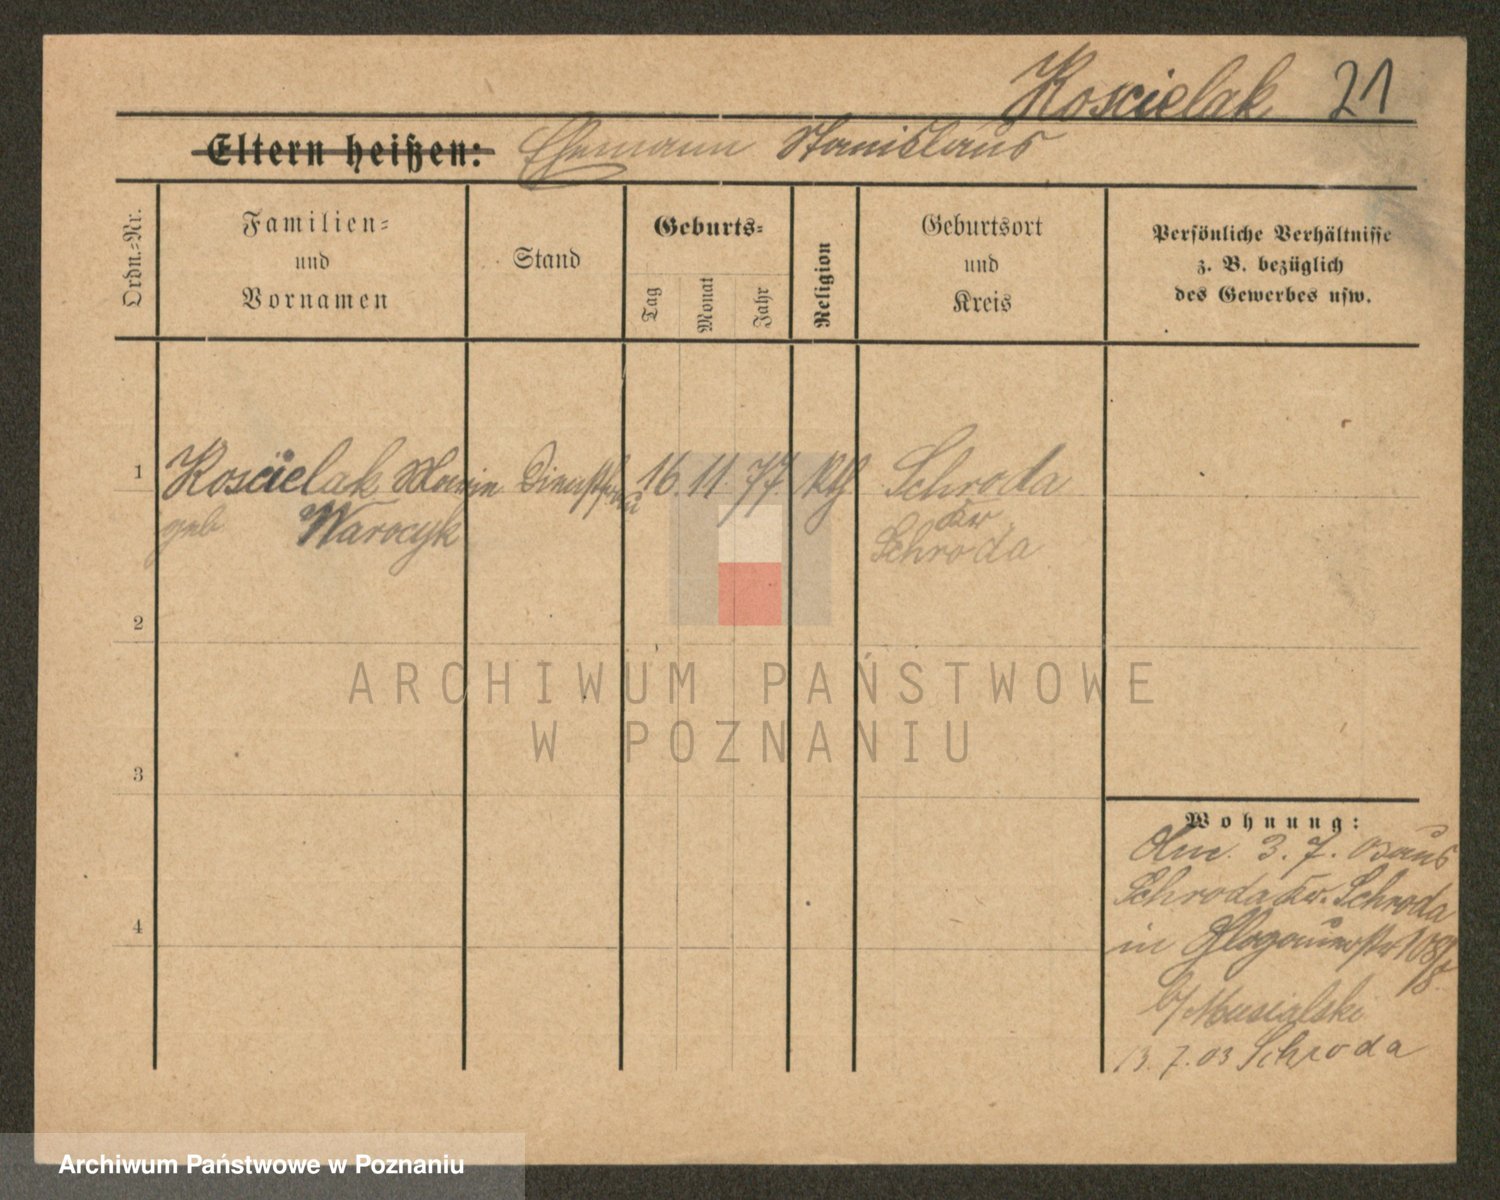 Koscielak 21
Eltern heißen: Ehemann Stanislaus
Ordn.=Nr.
Familien=
und
Vornamen
Stand
Geburts=
Tag
Monat
Jahr
Religion
Geburtsort
und
Kreis
Persönliche Verhältnisse
z. B. bezüglich
des Gewerbes usw.
1 Koscielak Marie Dienstfrau 16. 11. 77. kth Schroda
geb Warocyk Kr
Schroda
2
3
4
Wohnung:
3. 7. 03 aus
Schroda Kr. Schroda
in Glogauerstr 108
b/ Musialski
13. 7. 03 Schroda
ARCHIWUM PAŃSTWOWE
W POZNANIU
Archiwum Państwowe w Poznaniu